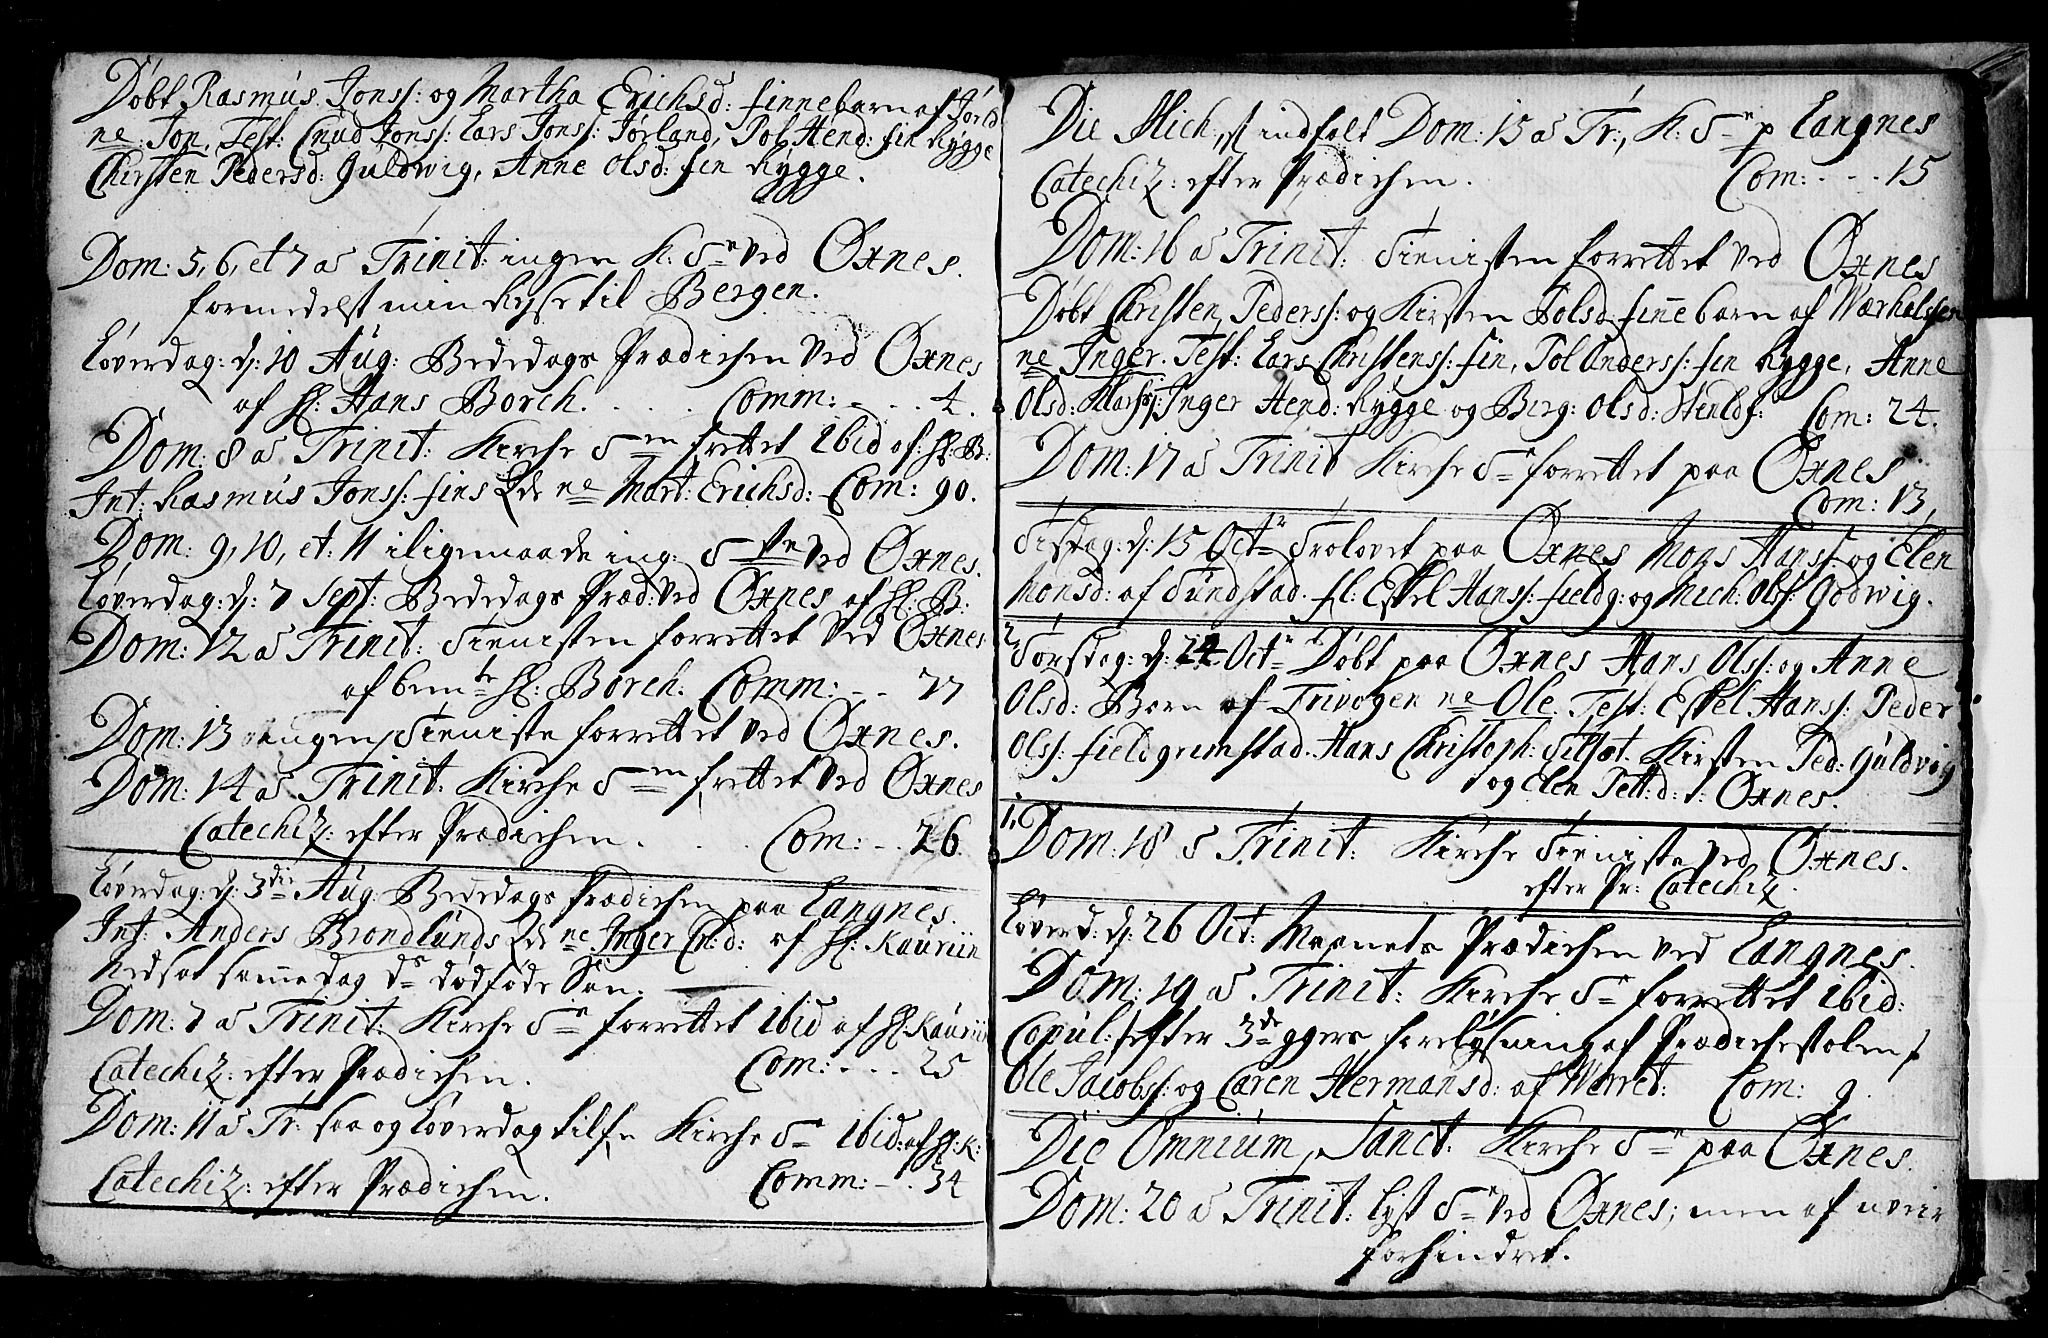 Døbt Rasmus Jonss: og Martha Erichsd: finnebarn af Jörl
ne: Jon, Test: Cnud Jonss: Lars Jonss: Jörland, Pol Hend: fin Rygge
Chirsten Pedersd: Guldwig, Anne Olsd: fin Rygge.
Dom: 5, 6, et 7 a Trinit: ingen K: S ved Øxnes.
formedelst min Rejse til Bergen.
Løverdag: d: 10 Aug: Bededags Prædichen ved Øxnes
af H: Hans Borch. Comm: - . . 4.
Dom: 8 a Trinit: Kirche Sen frettet ibid af: H: B:
Int: Rasmus Jonss: fins ne Mart: Erichsd: Com: 90.
Dom: 9, 10, et: 11 iligemaade ing: S ved Øxnes.
Løverdag: d: 7 Sept: Bededags Præd: ved Øxnes af H: B:
Dom: 12 a Trinit: Tienisten forrettet ved Øxnes
af bemte H: Borch. Comm: - - 77
Dom: 13 ingen Tieniste forrettet ved Øxnes.
Dom: 14 a Trinit: Kirche Sen frettet ved Øxnes
Catechiz: efter Prædichen. . . Com: - . 26
Løverdag: d: 3die Aug: Bededags Prædichen paa Langnes.
Int: Anders Brondlunds ne Inger Cn: d: af H: Kauriin
Nedsat samme dag ds dødføde Søn.
Dom: 7 a Trinit: Kirche Se forrettet ibid af H: Kauriin
Catechiz: efter Prædichen. Com: - . . 25
Dom: 11 a Tr: saa og Løverdag tilf Kirche Se ibid: af H: K:
Catechiz: efter Prædichen. Comm: - . 34
Die Mich: indfalt Dom: 15 a Tr:, K: Se p Langnes
Catechiz: efter Prædichen. Com: - - - 15
Dom: 16 a Trinit: Tienisten forrettet ved Øxnes
Døbt Christen Pederss: og Kirsten Polsd: finne barn af Wærhalsen
ne Inger. Test: Lars Christenss: fin, Pol Anderss: fin Rygge, Anne
Olsd: Inger Hend: Rygge og Berg: Olsd: Com: 24.
Dom: 17 a Trinit Kirche Se forrettet paa Øxnes
Com: 13
Tisdag: d: 15 Octr Trolovet paa Øxnes Mons Hanss: og Elen
Monsd: af Tundstad. fl: Eskel Hanss: fieldg: og Mich: Olss: Godwig.
2. Torsdag: d: 24 Octr Døbt paa Øxnes Hans Olss: og Anne
Olsd: Børn af Trivogen ne Ole. Test: Eskel Hanss: Peder
Olss: fieldgrimstad. Hans Christoph: Kirsten Ped: Guldvig
og Elen Pett: d: i: Øxnes.
1. Dom: 18 a Trinit: Kirche Tieniste ved Øxnes.
efter Pr: Catechiz.
Løverd: d: 26 Oct: Maanets Prædichen ved Langnes.
Dom: 19 a Trinit: Kirche Se forrettet ibid:
Copul: efter 3de ggers forelysning af Prædichestolen
Ole Jacobss: og Caren Hermansd: af Werret: Com: 9.
Die Omnium Sanct: Kirche Se paa Øxnes.
Dom: 20 a Trinit: lyst Se ved Øxnes; men af uveir
forhindret.